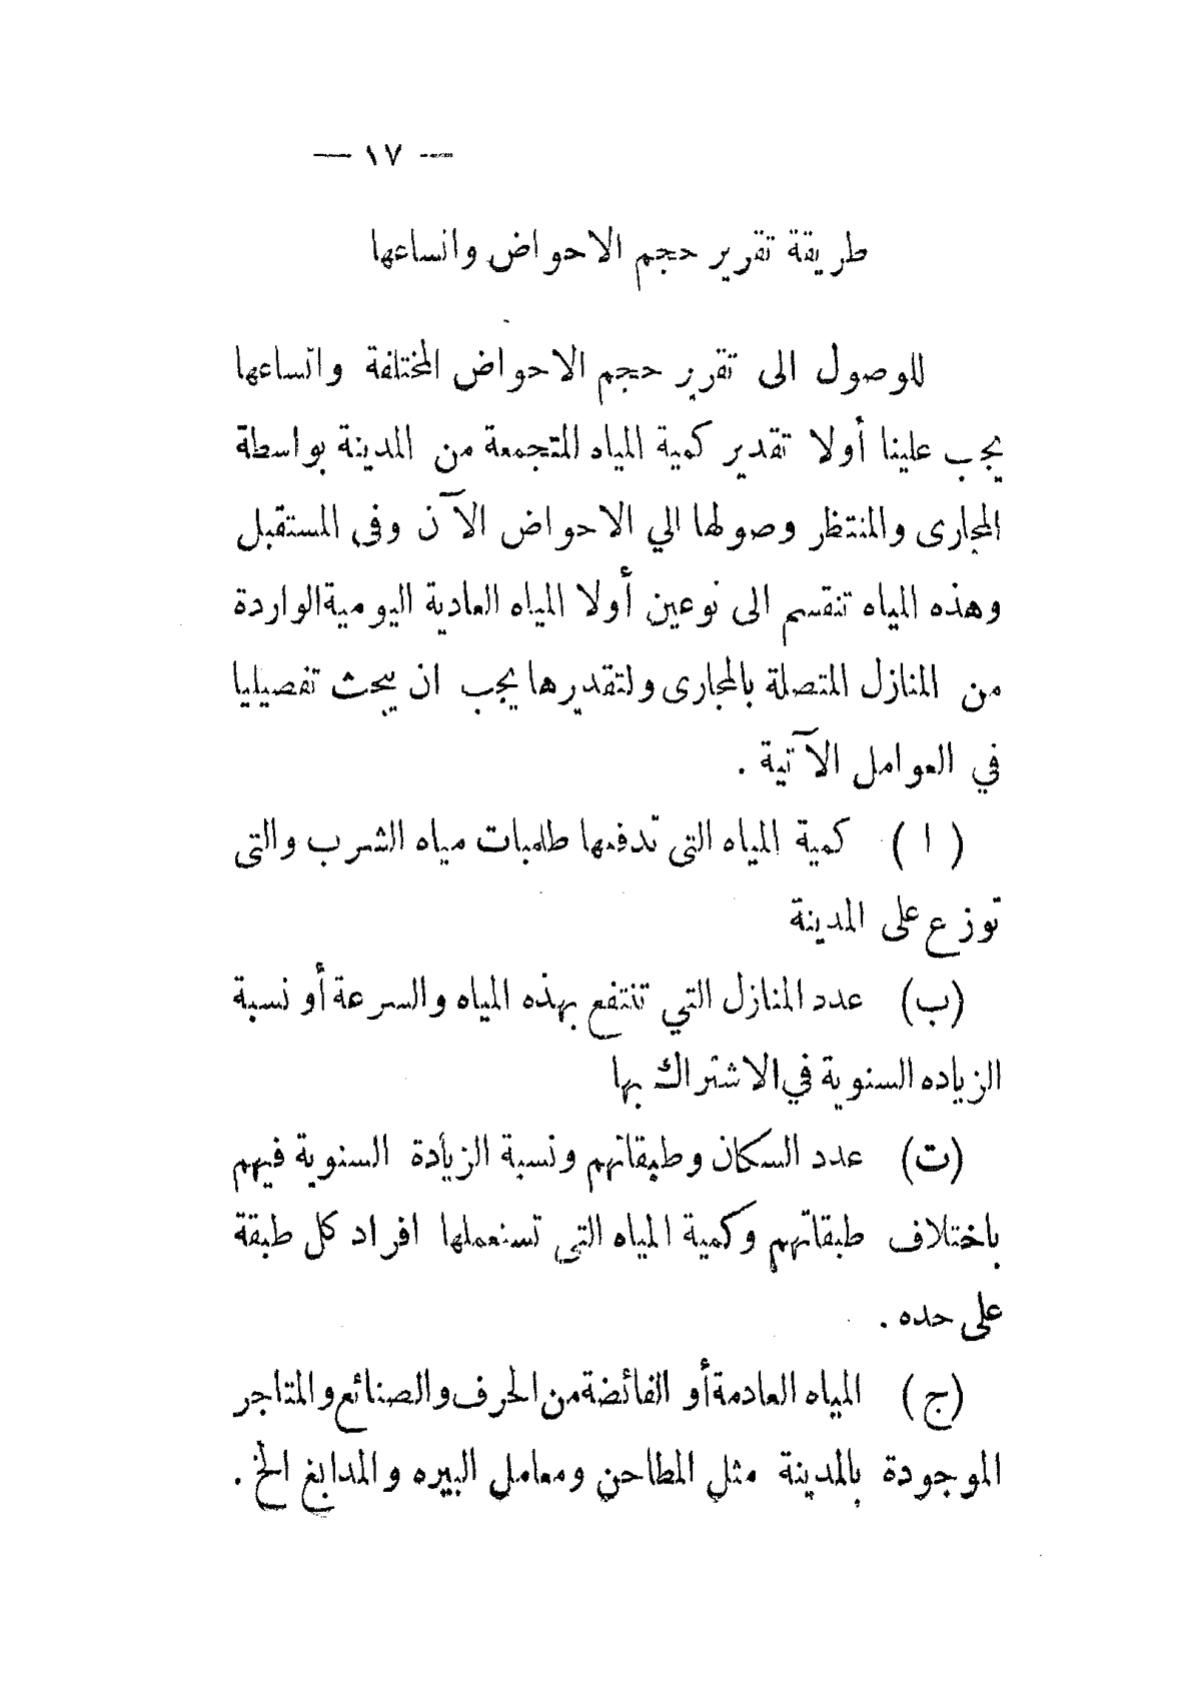 — ١٧ —
طريقة تقرير حجم الاحواض واتساعها
للوصول الى تقرير حجم الاحواض المختلفة واتساعها
يجب علينا أولا تقدير كمية المياه المتجمعة من المدينة بواسطة
المجارى والمنتظر وصولها الي الاحواض الآن وفى المستقبل
وهذه المياه تنقسم الى نوعين أولا المياه العادية اليومية الواردة
من المنازل المتصلة بالمجارى ولتقديرها يجب ان يبحث تفصيليا
في العوامل الآتية .
( ا ) كمية المياه التى تدفعها طلمبات مياه الشرب والتى
توزع على المدينة
(ب) عدد المنازل التي تنتفع بهذه المياه والسرعة أو نسبة
الزياده السنوية في الاشتراك بها
(ت) عدد السكان وطبقاتهم ونسبة الزيادة السنوية فيهم
باختلاف طبقاتهم وكمية المياه التى تستعملها افراد كل طبقة
على حده .
(ج) المياه العادمة أو الفائضة من الحرف والصنائع والمتاجر
الموجودة بالمدينة مثل المطاحن ومعامل البيره والمدابغ الخ .